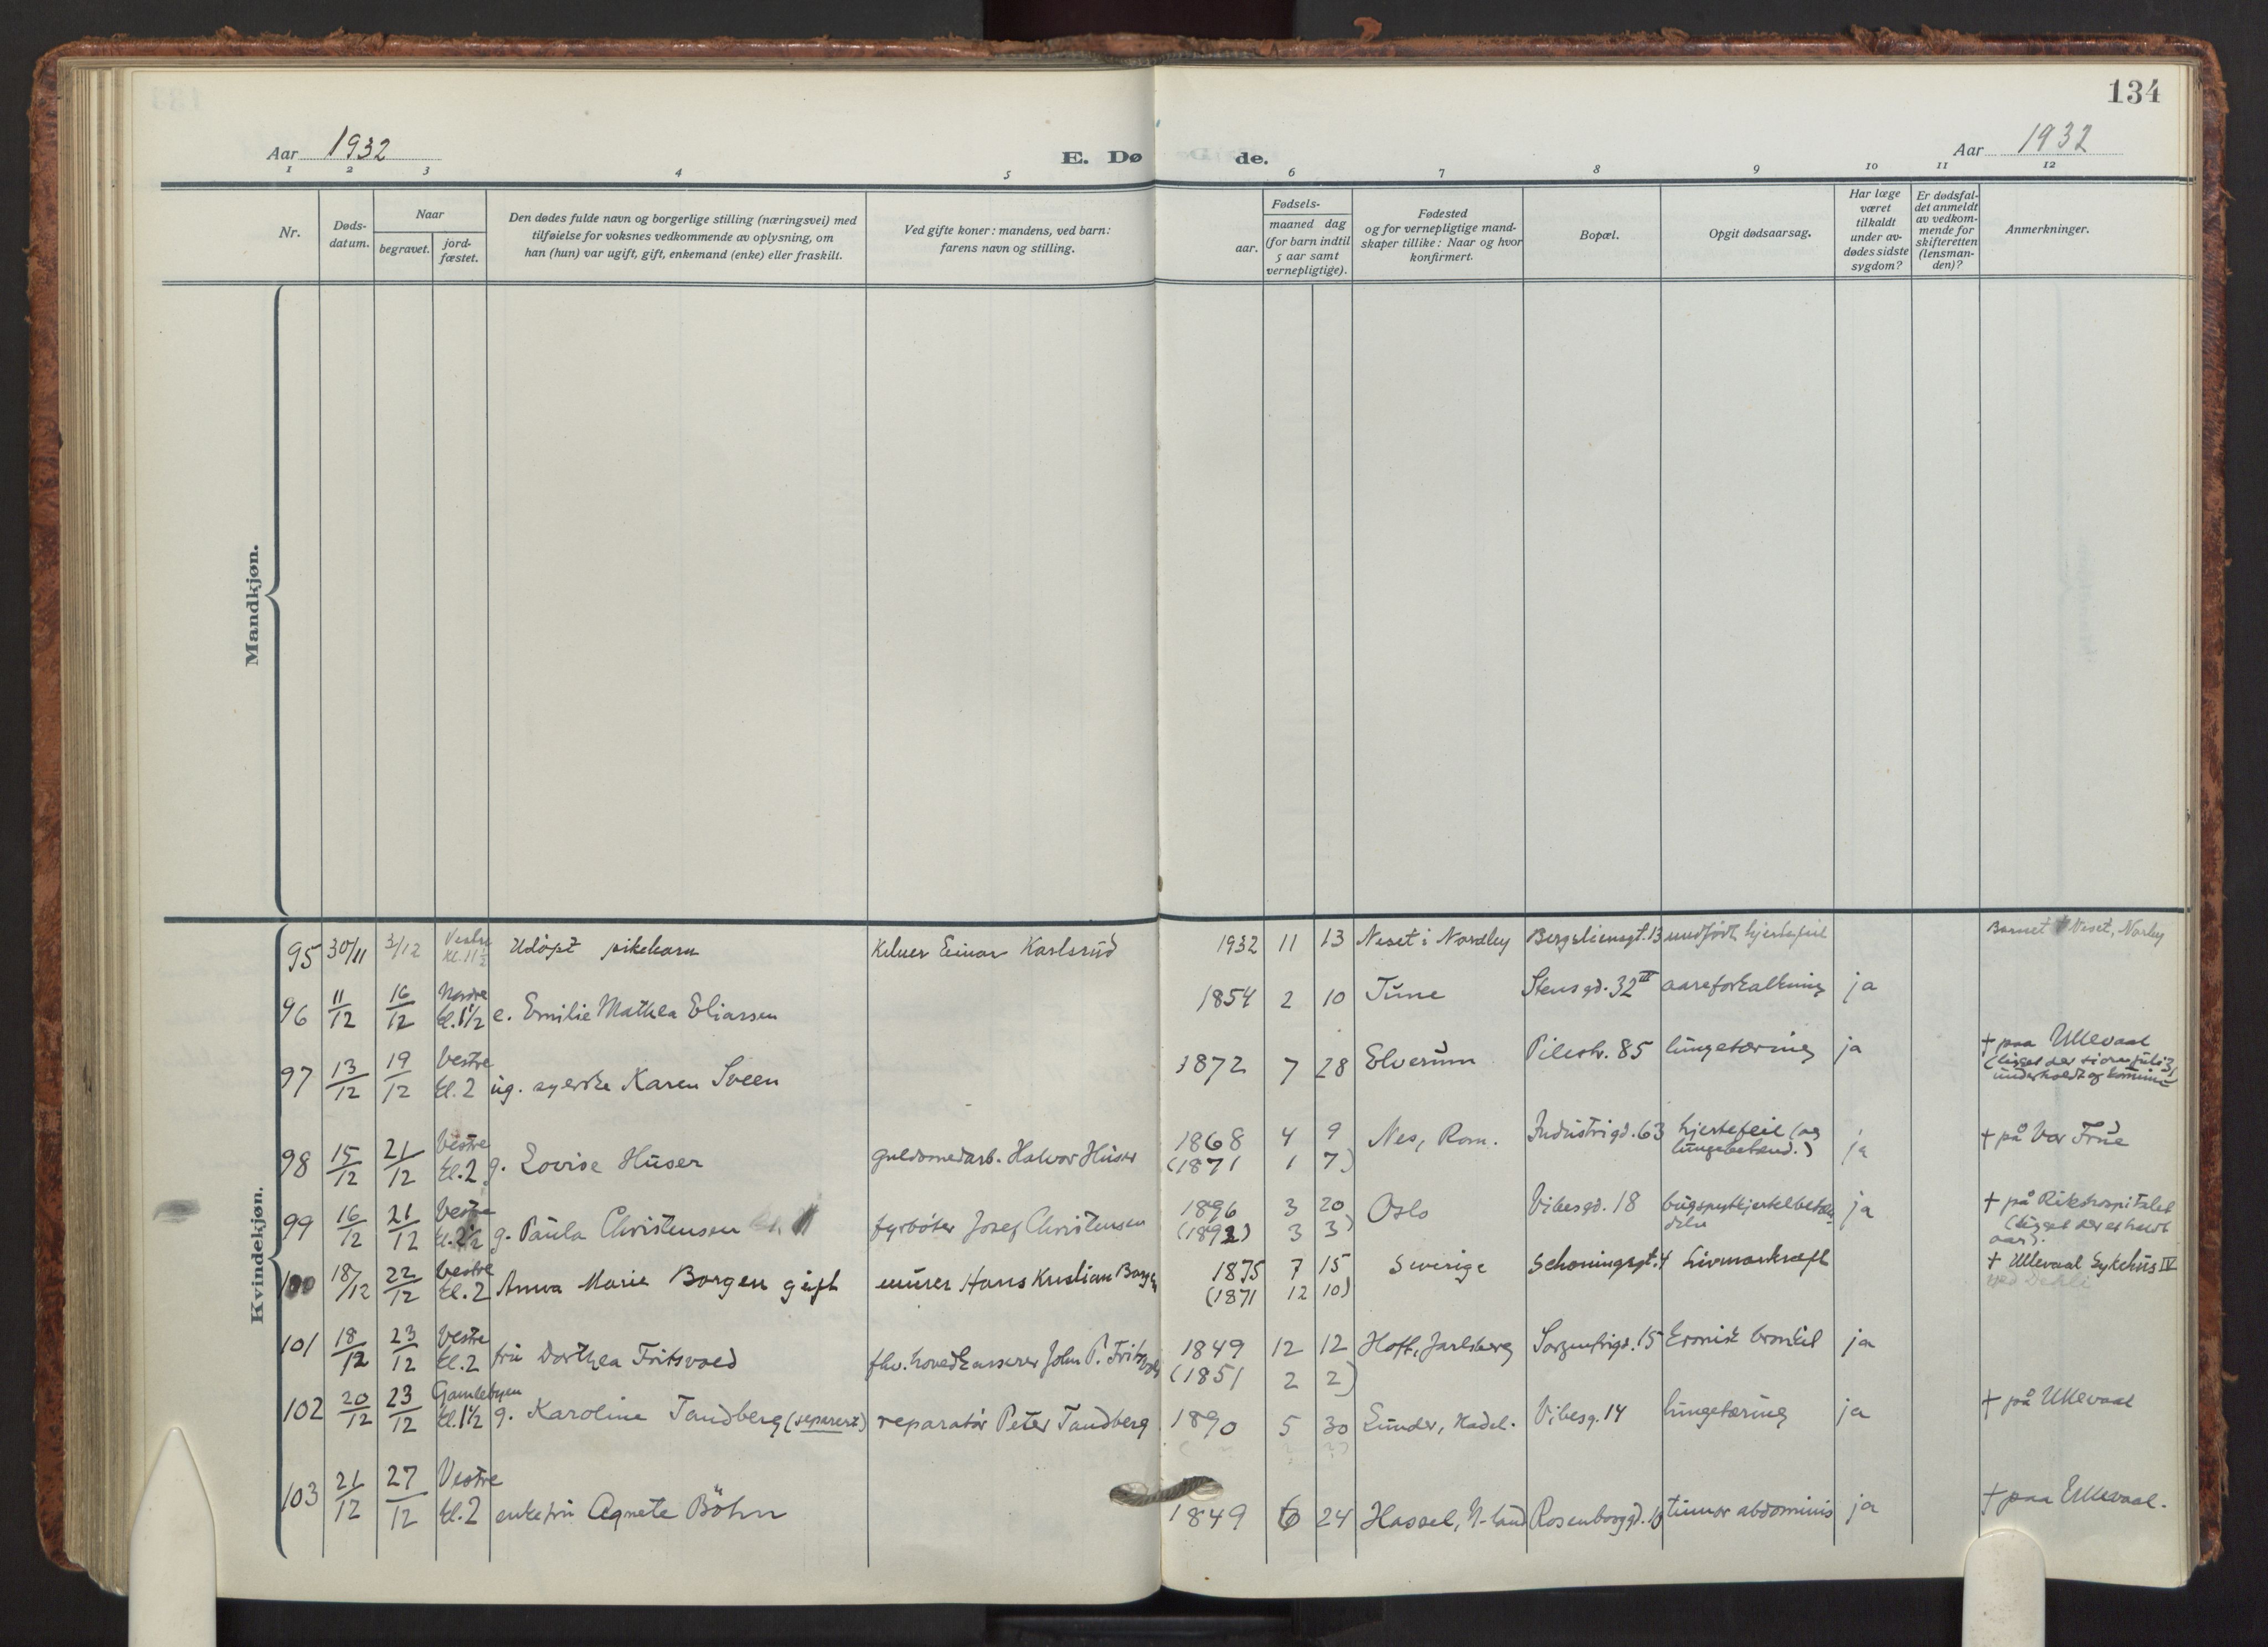 134
Aar 1932
E. Dø de.
Aar 1932
1 2 3 4 5 6 7 8 9 10 11 12
Nr.
Døds-
datum.
Naar
begravet.
jord-
fæstet.
Den dødes fulde navn og borgerlige stilling (næringsvei) med
tilføielse for voksnes vedkommende av oplysning, om
han (hun) var ugift, gift, enkemand (enke) eller fraskilt.
Ved gifte koner: mandens, ved barn:
farens navn og stilling.
Fødsels-
aar.
maaned dag
(for barn indtil
5 aar samt
vernepligtige).
Fødested
og for vernepligtige mand-
skaper tillike: Naar og hvor
konfirmert.
Bopæl.
Opgit dødsaarsag.
Har læge
været
tilkaldt
under av-
dødes sidste
sygdom?
Er dødsfal-
det anmeldt
av vedkom-
mende for
skifteretten
(lensman-
den)?
Anmerkninger.
Mandkjøn.
Kvindekjøn.
95 30/11 3/12 Vestre kl. 11½ Udöpt pikebarn Kelner Einar Karlsrud 1932 11 13 Neset i Nordby Bergsliensgt. 13 medfödt hjertefeil Barnet Neset, Norby
96 11/12 16/12 Nordre kl. 1½ e. Emilie Mathea Eliassen 1854 2 10 Tune Stensgd. 32 III aareforkalkning ja
97 13/12 19/12 Vestre kl. 2 ug. syerske Karen Sveen 1872 7 28 Elverum Pilestr. 85 lungetæring ja † paa Ullevaal
98 15/12 21/12 Vestre kl. 2 g. Lovise Huser guldsmedarb. Halvor Huser 1868 4 9 Nes, Rom. Industrigd. 63 hjertefeil (og lungebetænd.) ja † på Vor Frue
(1871 1 7)
99 16/12 21/12 Vestre kl. 2½ g. Paula Christensen fyrböter Josef Christensen 1896 3 20 Oslo Vibesgd. 18 ja † på Rikshospitalet
(1892) 3 3)
100 18/12 22/12 Vestre kl. 2 Anna Marie Borgen gift murer Hans Kristian Borgen 1875 7 15 Sverige Schøningsgt. 4 Livmorkræft † Ullevaal Sykehus IV
(1871 12 10)
101 18/12 23/12 Vestre kl. 2 fru Dorthea Fritsvold fhv. hovedkasserer John P. Fritsvold 1849 12 12 Hoff, Jarlsberg Sorgenfrigd. 15 kronisk bronkit ja
(1851 2 2)
102 20/12 23/12 Gamlebyen kl. 1½ g. Karoline Tandberg (separert) reparatör Peter Tandberg 1890 5 30 Lunder, Hadel. Vibesg. 14 lungetæring ja † på Ullevaal
103 21/12 27/12 Vestre kl. 2 enkefru Agnete Böhn 1849 6 24 Hassel, N-land Rosenborggd. tumor abdominis ja † paa Ullevaal.